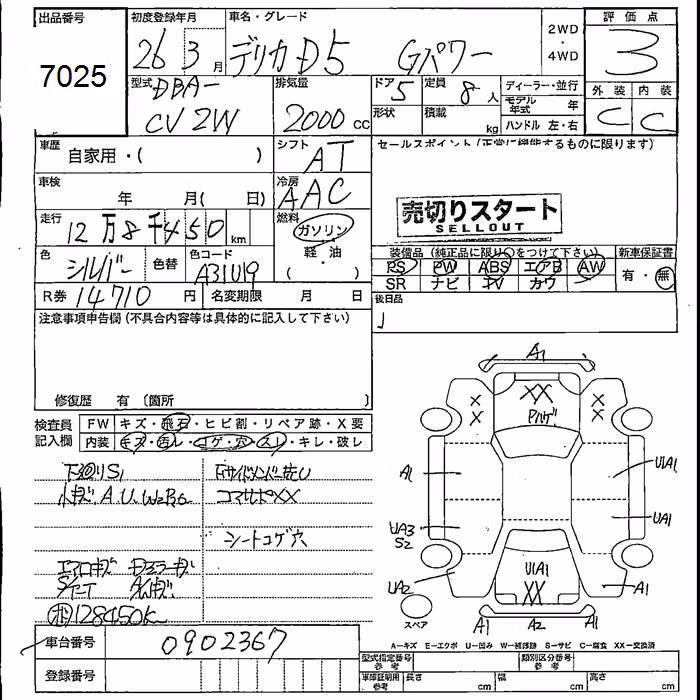 出品番号
7025
初度登録年月
26 3 月
車名・グレード
デリカD5 Gパワー
2WD
・
4WD
評価点
3
外装 内装
C C
型式
DBA-
CV2W
排気量
2000 cc
ドア
5
定員
8 人
形状
積載
kg
ディーラー・並行
モデル年式 年
ハンドル 左・右
車歴
自家用・( )
シフト
AT
セールスポイント(正常に機能するものに限ります)
車検
年 月( 日)
冷房
AAC
売切りスタート
SELLOUT
走行
12万8千450 km
燃料
ガソリン
・
軽・油
・
( )
色
シルバー
色替
色コード
A31U19
装備品(純正品に限り○をつけて下さい)
PS PW ABS エアB AW
SR ナビ TV カワ
新車保証書
有・無
R券 14710 円
名変期限 月 日
後日品
注意事項申告欄(不具合内容等は具体的に記入して下さい)
修復歴 有(箇所 )
検査員記入欄
FW キズ・飛石・ヒビ割・リペア跡・X要
内装 キズ・汚レ・コゲ・穴・スレ・キレ・破レ
下廻りS1
小キズA.U.W2
コマサポXX
シートコゲ穴
エアロキズ
128450K
A1
XX
X
X
X
X
A1
U1A1
UA3
S2
UA1
UA2
U1A1
XX
A1
スペア
A1
A2
A1
車台番号
0902367
登録番号
A−キズ E−エクボ U−凹み W−補修跡 S−サビ C−腐食 XX−交換済
型式指定番号
参考
類別区分番号
参考
車庫証明用
参考
長さ cm
幅 cm
高さ cm